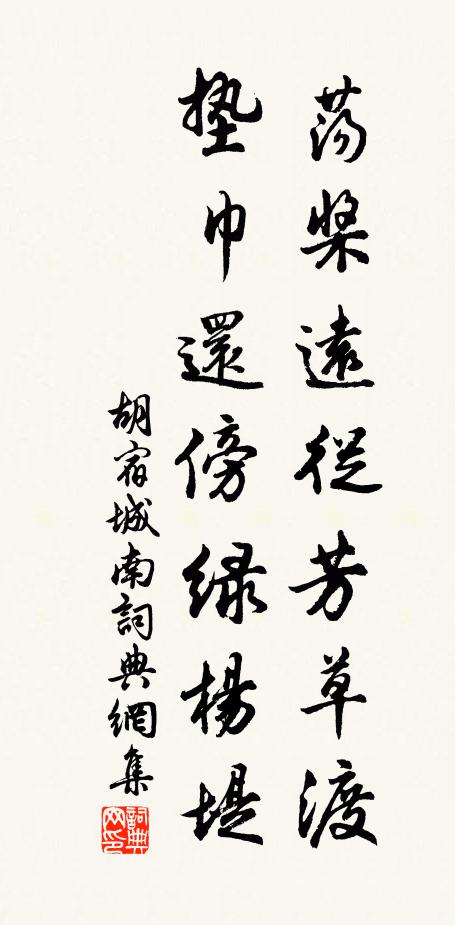 蕩槳遠從芳草渡
墊巾還傍綠楊堤
胡宿城南詞典網集
詞典網印